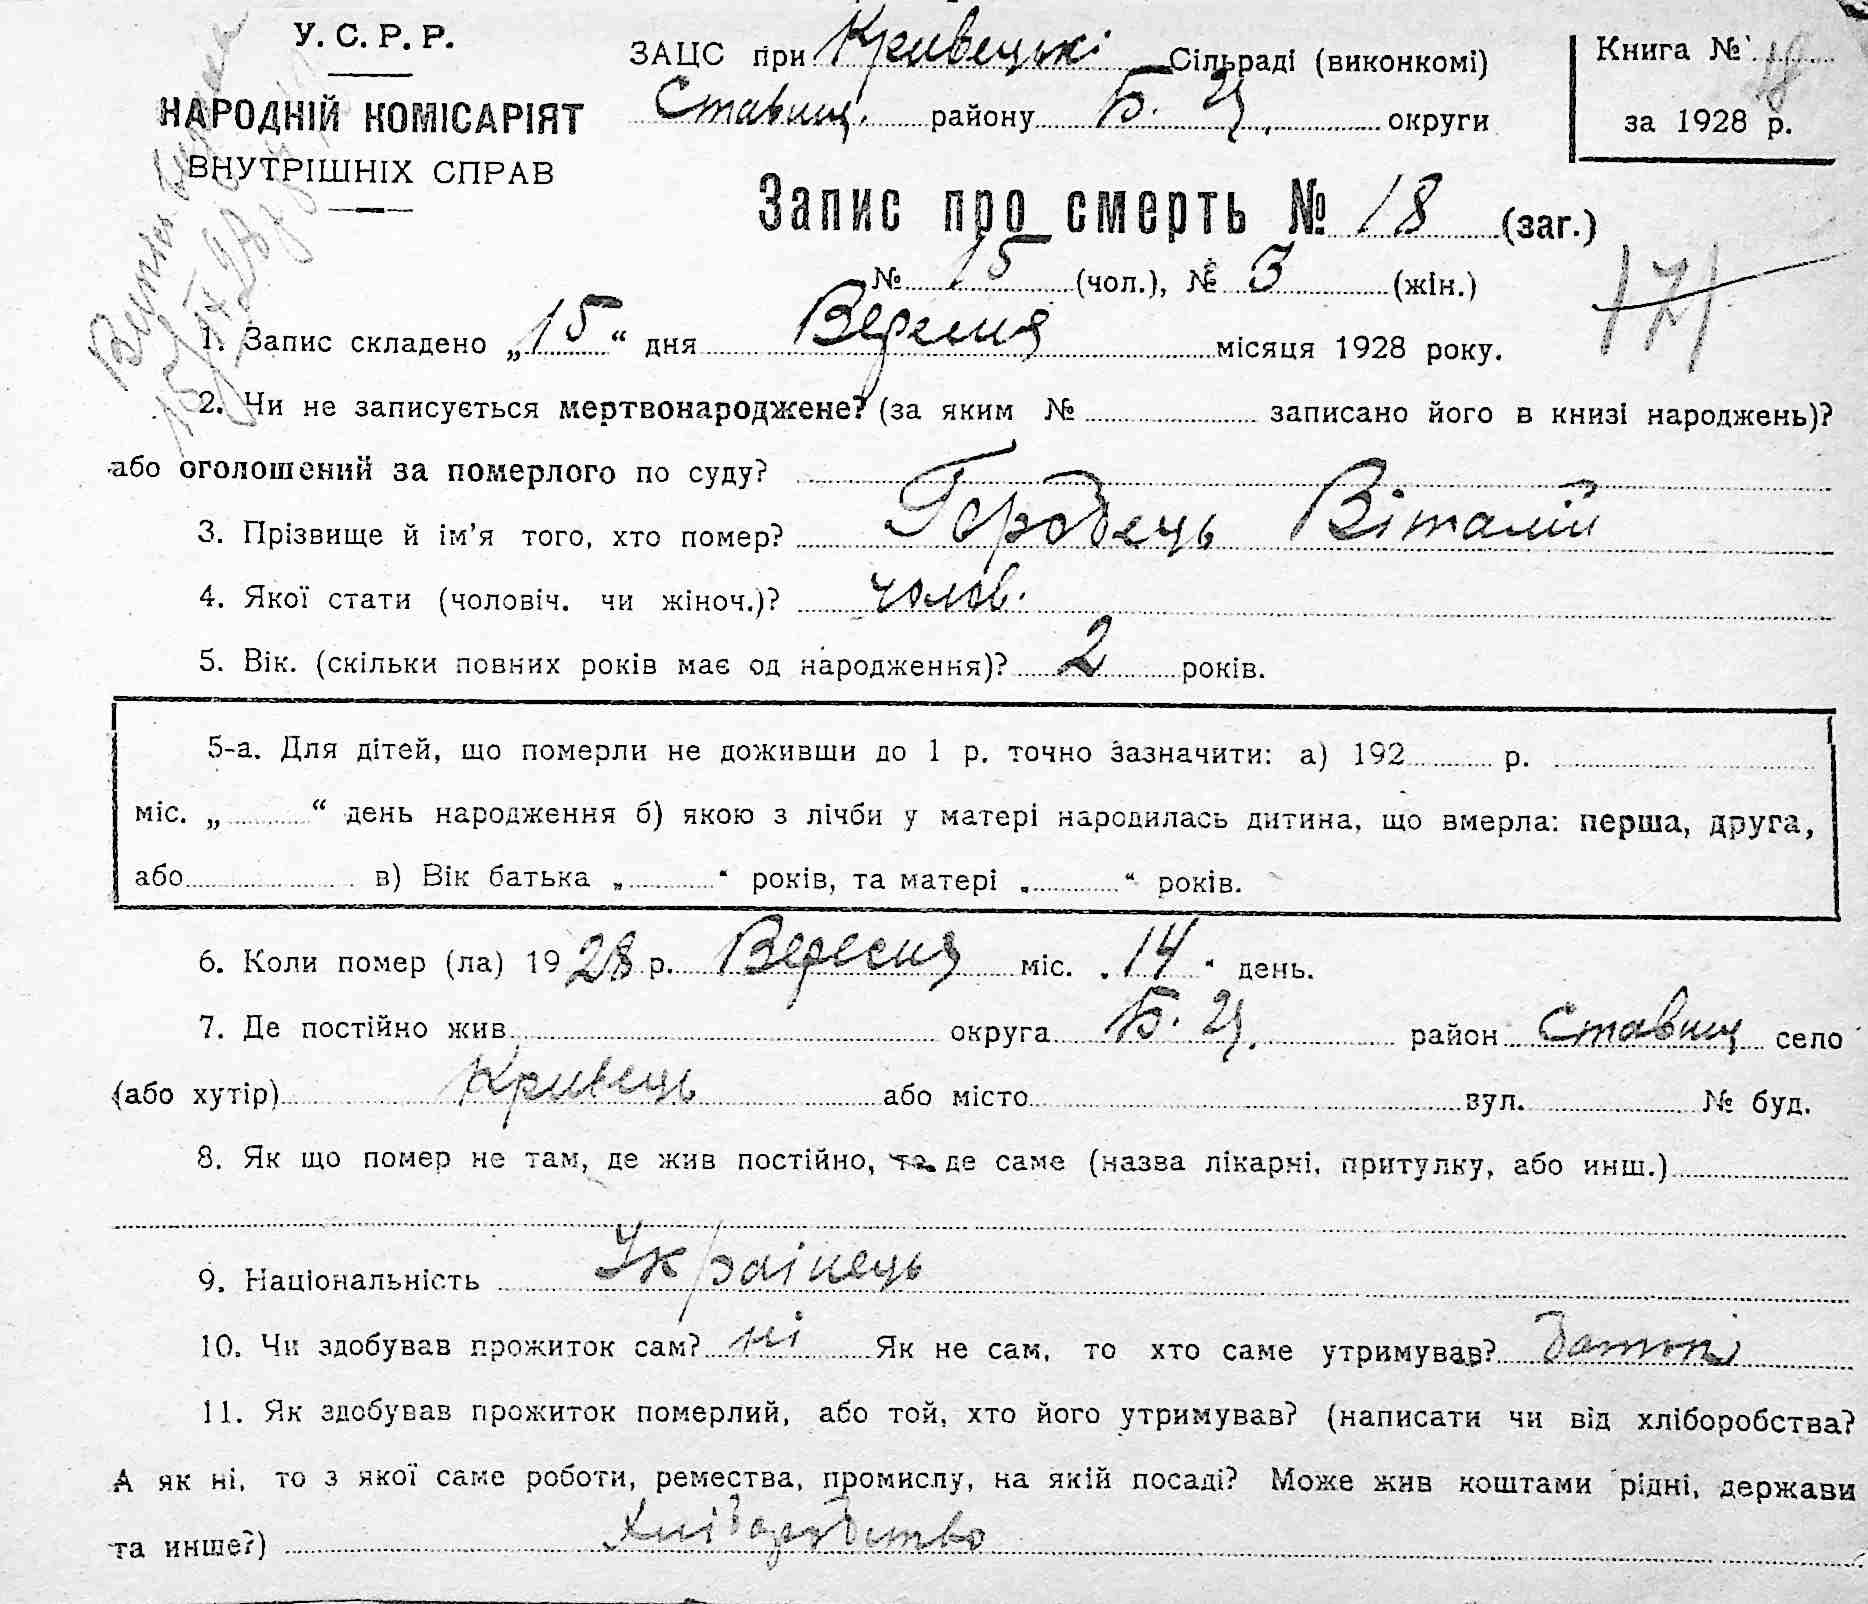 У. С. Р. Р.
НАРОДНІЙ КОМІСАРІЯТ
ВНУТРІШНІХ СПРАВ
ЗАЦС при Кривецькі Сільраді (виконкомі)
Ставищ. району Б. Ц. округи
Книга № 18
за 1928 р.
Запис про смерть № 18 (заг.)
№ 15 (чол.), № 3 (жін.)
171
1. Запис складено „15“ дня Вересня місяця 1928 року.
2. Чи не записується мертвонароджене? (за яким № записано його в книзі народжень)?
або оголошений за померлого по суду?
3. Прізвище й ім’я того, хто помер? Городець Віталій
4. Якої стати (чоловіч. чи жіноч.)? чолов.
5. Вік. (скільки повних років має од народження)? 2 років.
5-а. Для дітей, що померли не доживши до 1 р. точно зазначити: а) 192 р.
міс. „ “ день народження б) якою з лічби у матері народилась дитина, що вмерла: перша, друга,
або в) Вік батька „ “ років, та матері „ “ років.
6. Коли помер (ла) 1928 р. Вересня міс. „14“ день.
7. Де постійно жив округа Б. Ц. район Ставищ село
(або хутір) Кривець або місто вул. № буд.
8. Як що помер не там, де жив постійно, та де саме (назва лікарні, притулку, або инш.)
9. Національність Українець
10. Чи здобував прожиток сам? ні Як не сам, то хто саме утримував? батьки
11. Як здобував прожиток померлий, або той, хто його утримував? (написати чи від хліборобства?
А як ні, то з якої саме роботи, ремества, промислу, на якій посаді? Може жив коштами рідні, держави
та инше?) Хліборобство